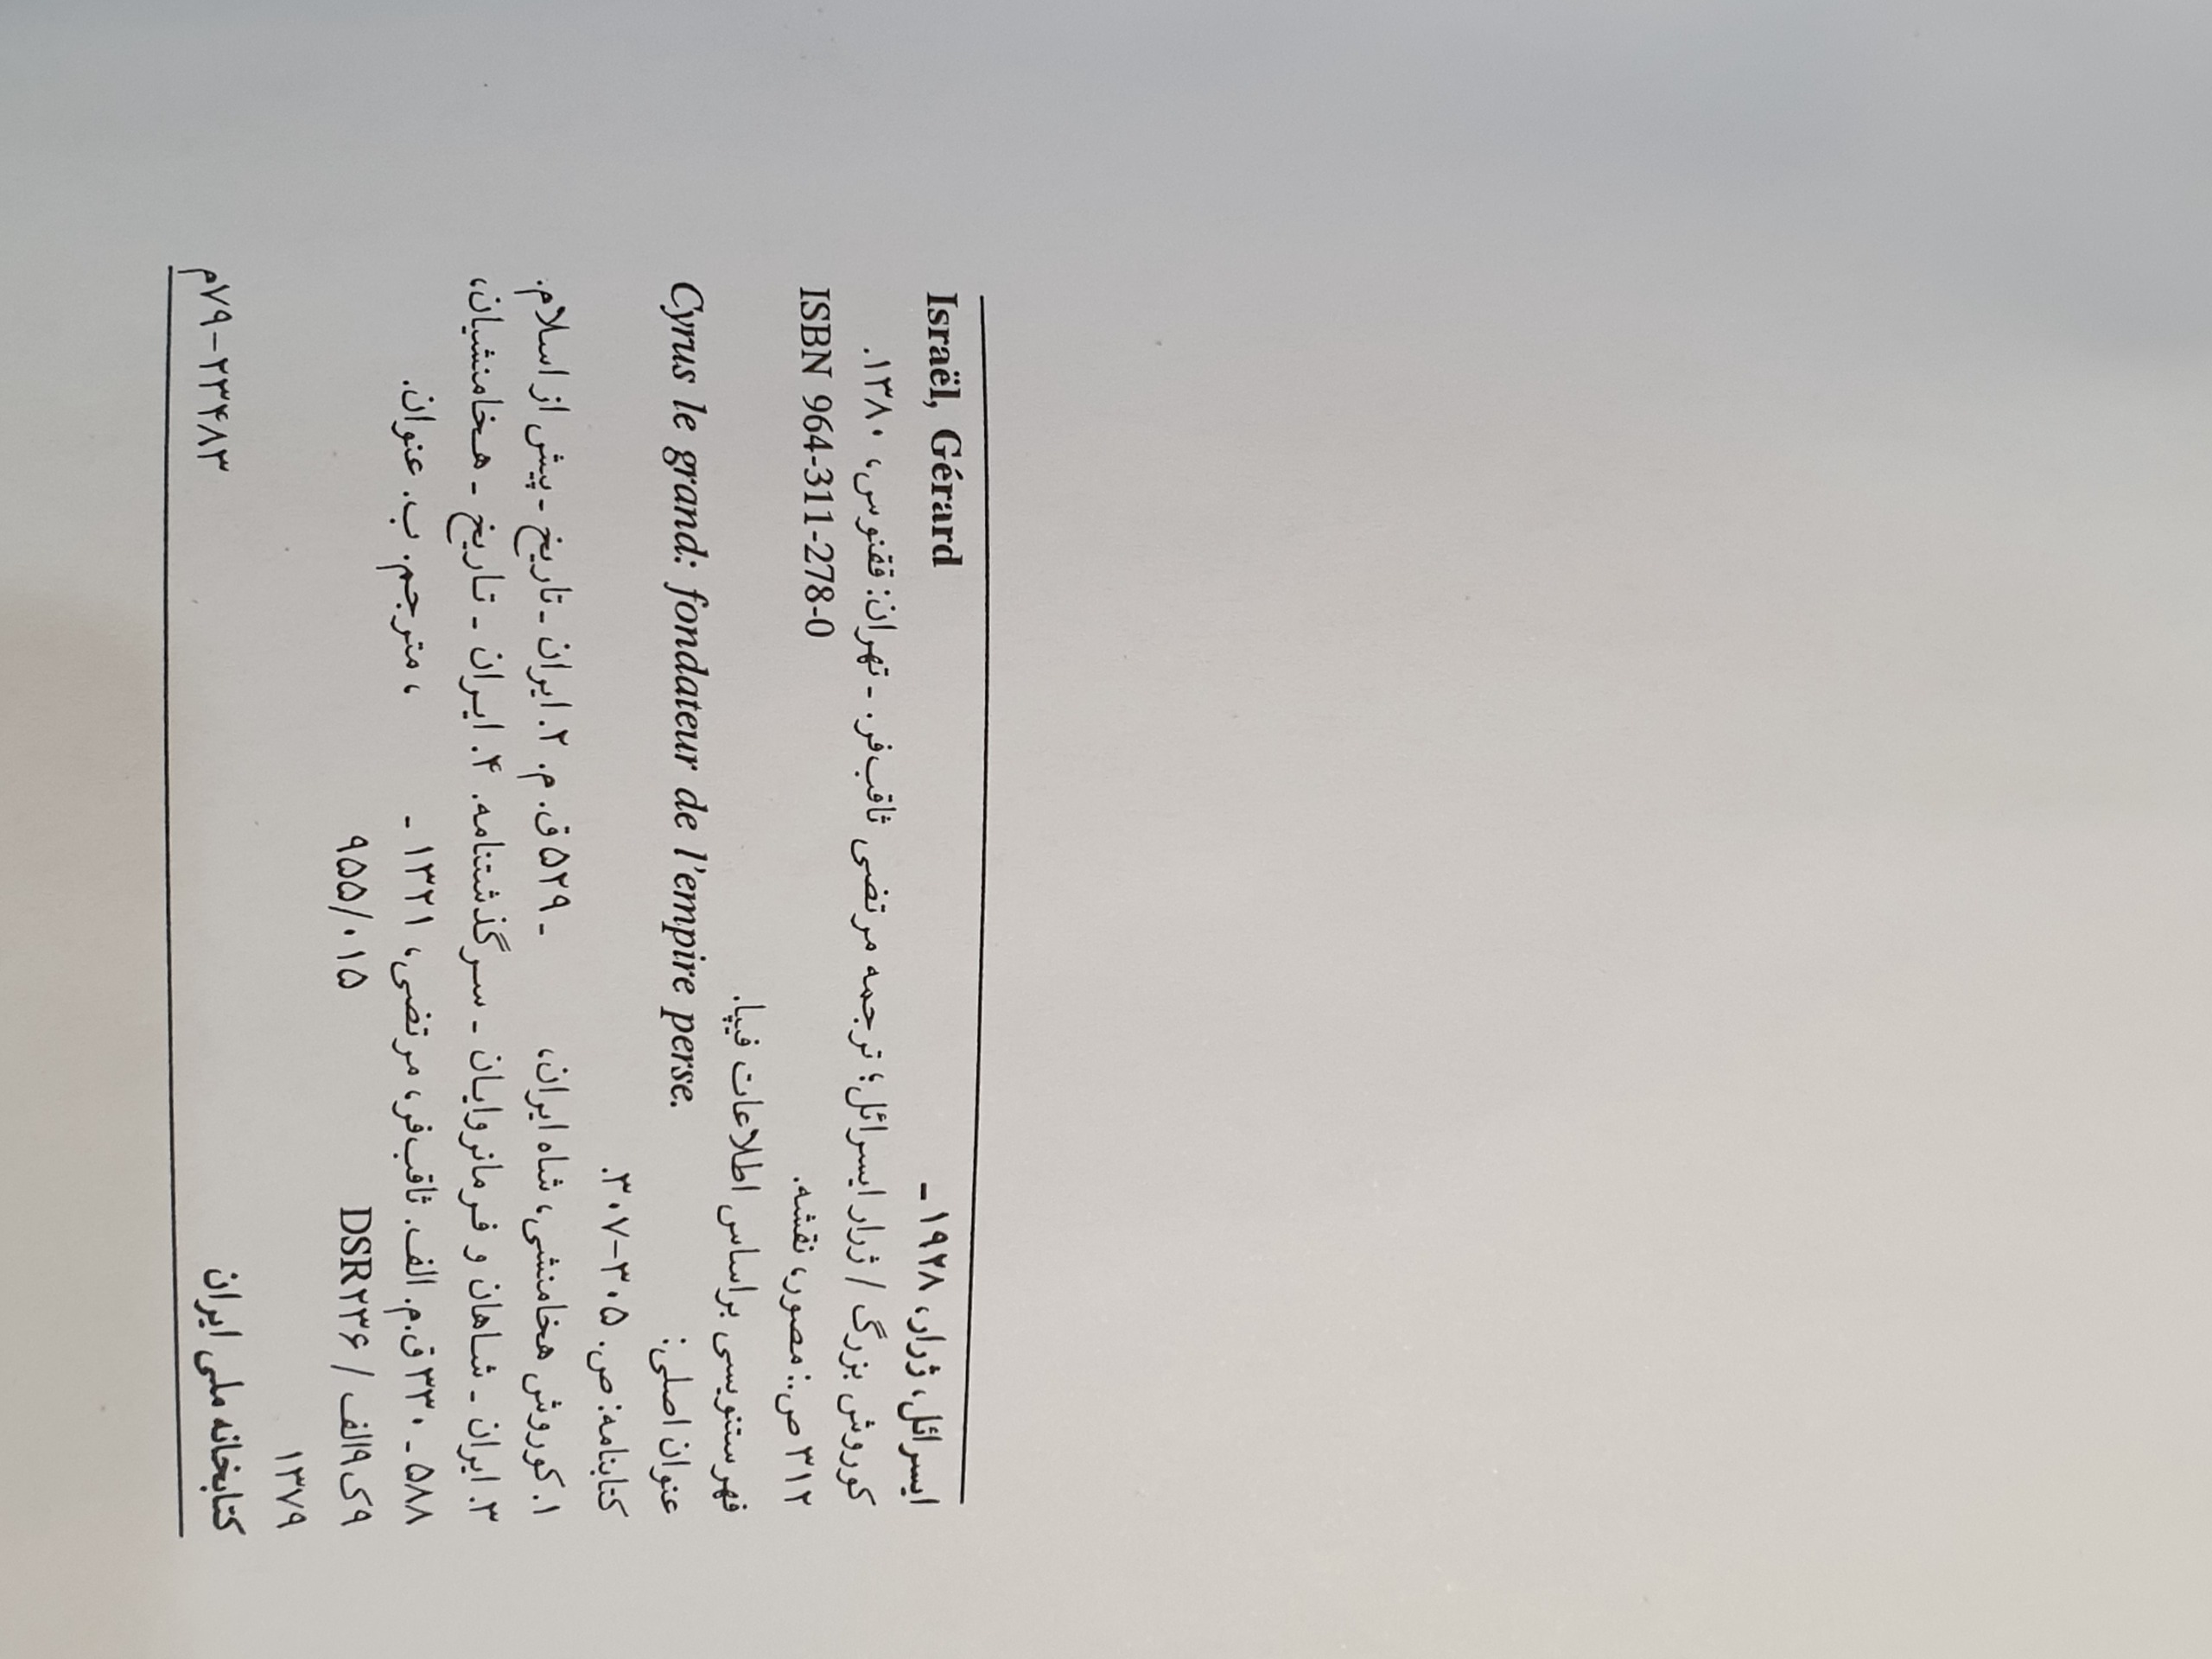 ایسرائل، ژرار، ۱۹۲۸ ـ Israël, Gérard
کوروش بزرگ / ژرار ایسرائل؛ ترجمه مرتضی ثاقب‌فر. ـ تهران: ققنوس، ۱۳۸۰.
۳۱۲ ص.: مصور، نقشه. ISBN 964-311-278-0
فهرستنویسی براساس اطلاعات فیپا.
عنوان اصلی: Cyrus le grand: fondateur de l'empire perse.
کتابنامه: ص. ۳۰۵-۳۰۷.
۱. کوروش هخامنشی، شاه ایران، ـ ۵۲۹ ق. م. ۲. ایران ـ تاریخ ـ پیش از اسلام.
۳. ایران ـ شاهان و فرمانروایان ـ سرگذشتنامه. ۴. ایران ـ تاریخ ـ هخامنشیان،
۵۸۸ ـ ۳۳۰ ق.م. الف. ثاقب‌فر، مرتضی، ۱۳۲۱ ـ ، مترجم. ب. عنوان.
۹ک۹الف / DSR۲۳۶ ۹۵۵/۰۱۵
۱۳۷۹
کتابخانه ملی ایران ۷۹-۲۳۴۸۳م